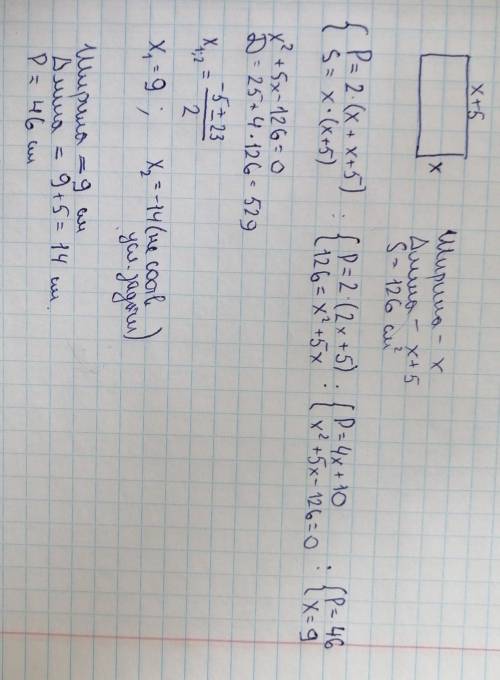 x+5
x
Ширина - x
Длина - x+5
S = 126 см²
{ P = 2·(x + x+5) : { P = 2·(2x+5) : { P = 4x + 10 : { P = 46
{ S = x·(x+5) { 126 = x² + 5x { x² + 5x - 126 = 0 { x = 9
x² + 5x - 126 = 0
D = 25 + 4·126 = 529
x₁,₂ = -5 ± 23 / 2
x₁ = 9 ; x₂ = -14 (не соотв
усл. задачи)
Ширина = 9 см
Длина = 9+5 = 14 см.
P = 46 см